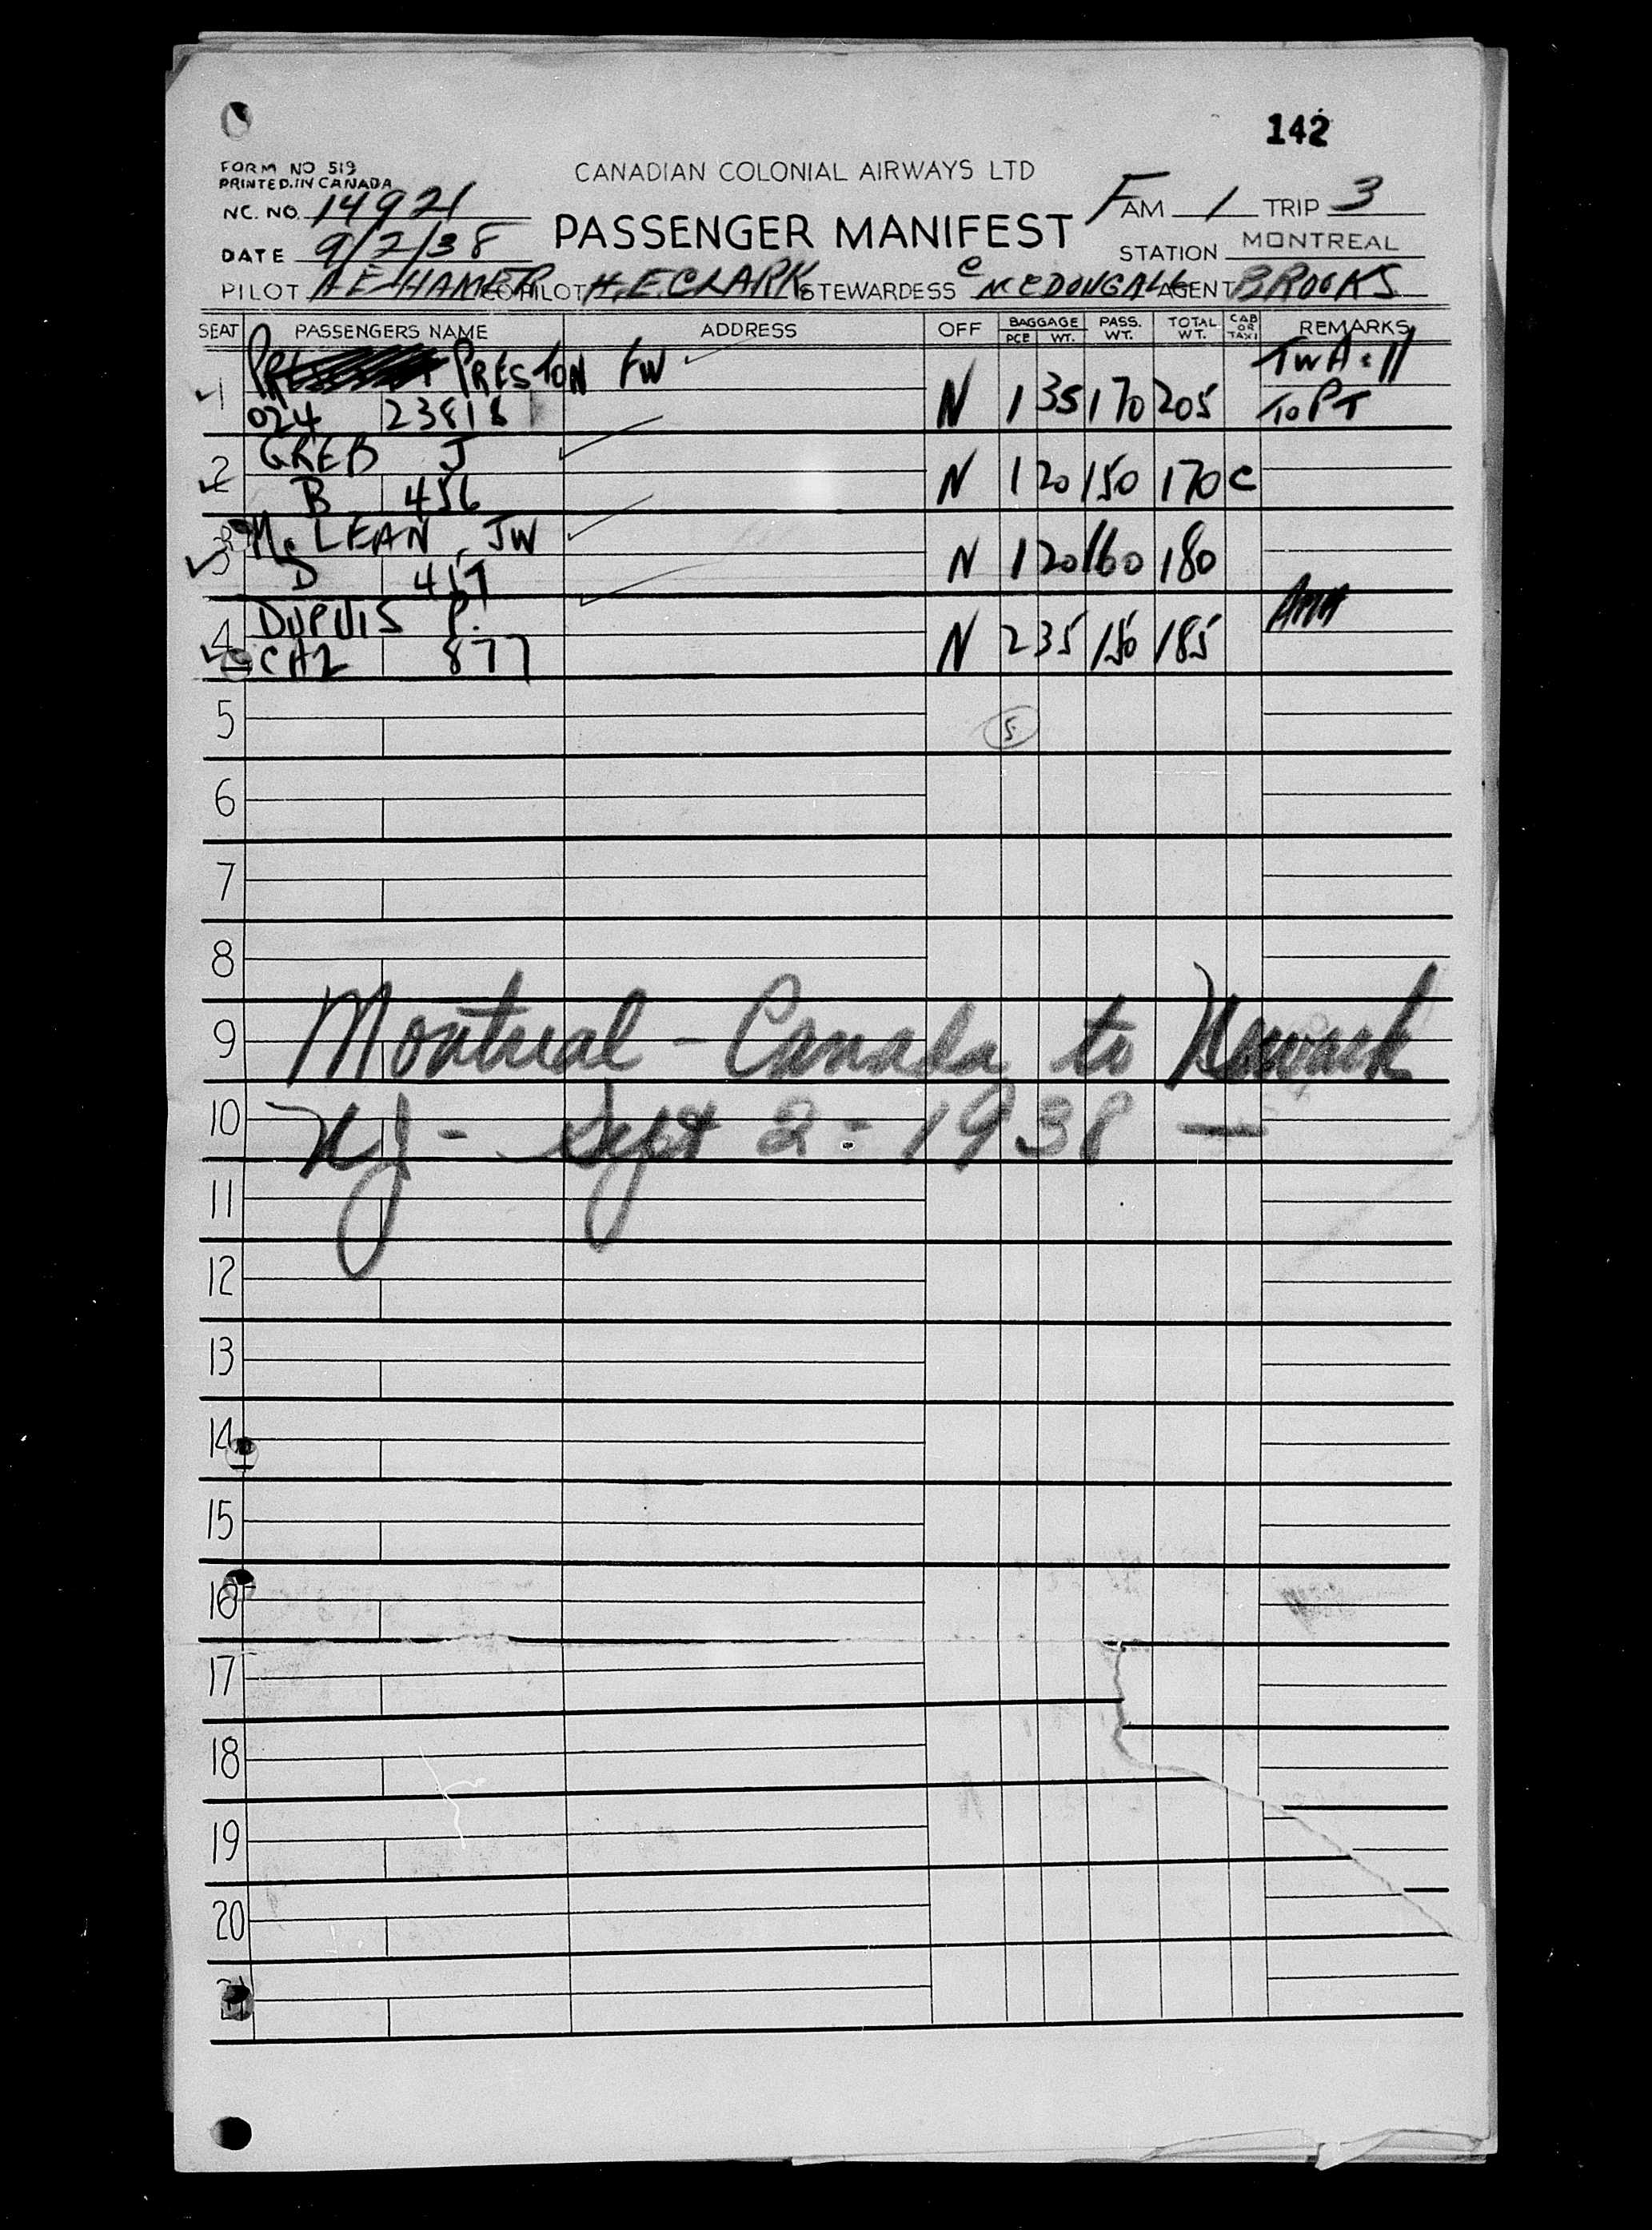 142
FORM NO 519
PRINTED.IN CANADA
CANADIAN COLONIAL AIRWAYS LTD
NC. NO. 14921
FAM 1 TRIP 3
PASSENGER MANIFEST
DATE 9/2/38
STATION MONTREAL
PILOT A E HAMER COPILOT H.E.CLARK STEWARDESS C MCDOUGALL AGENT BROOKS
SEAT PASSENGERS NAME ADDRESS OFF BAGGAGE PCE WT. PASS. WT. TOTAL WT. CAB OR TAXI REMARKS
1 PRESTON FW N 1 35 170 205 TWA 11
024 23818 TO PT
2 GREB J N 1 20 150 170 C
B 456
3 Mc LEAN JW N 1 20 160 180
D 457
4 DUPUIS P. N 2 35 150 185
CA2 877
5 5
6
7
8
9 Montreal - Canada to Newark
10 NJ - Sept 2 - 1938 -
11
12
13
14
15
16
17
18
19
20
21